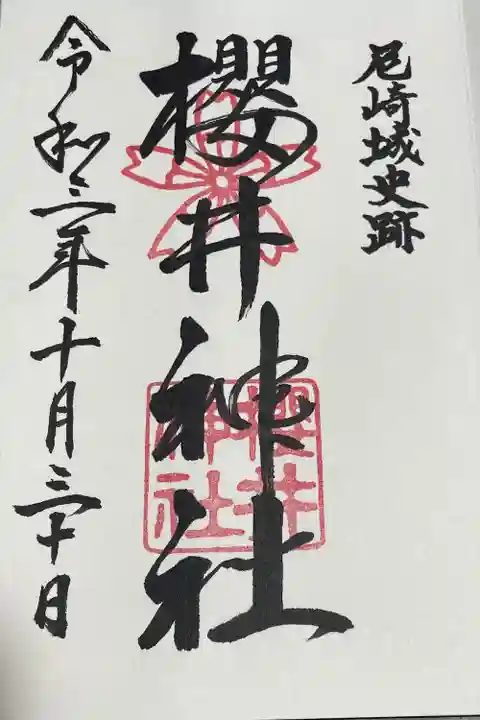 尼崎城史跡
櫻井神社
櫻井
神社
令和三年十月三十日